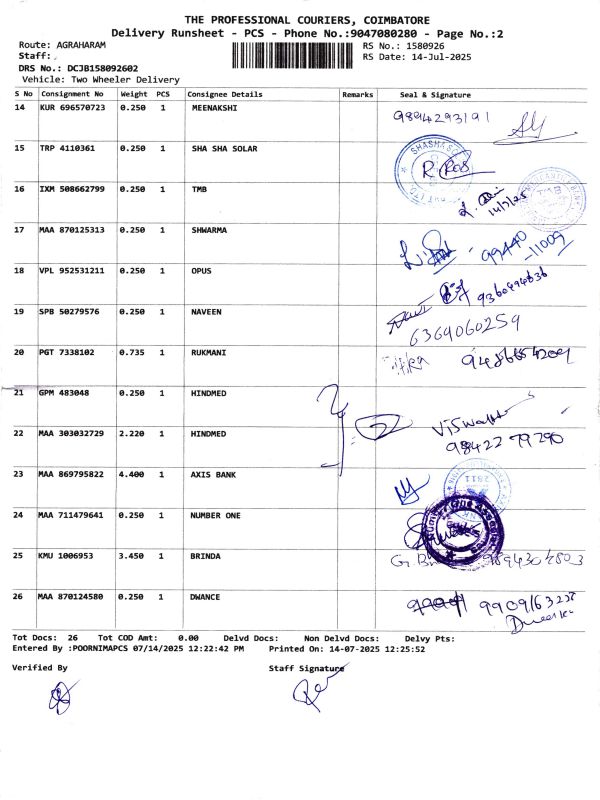 THE PROFESSIONAL COURIERS, COIMBATORE
Delivery Runsheet - PCS - Phone No.:9047080280 - Page No.:2
Route: AGRAHARAM RS No.: 1580926
Staff: RS Date: 14-Jul-2025
DRS No.: DCJB158092602
Vehicle: Two Wheeler Delivery
S No Consignment No Weight PCS Consignee Details Remarks Seal & Signature
14 KUR 696570723 0.250 1 MEENAKSHI 9894293191
15 TRP 4110361 0.250 1 SHA SHA SOLAR
16 IXM 508662799 0.250 1 TMB 14/7/25
TMB
17 MAA 870125313 0.250 1 SHWARMA 99440
-11009
18 VPL 952531211 0.250 1 OPUS
19 SPB 50279576 0.250 1 NAVEEN 6369060259
20 PGT 7338102 0.735 1 RUKMANI
21 GPM 483048 0.250 1 HINDMED
22 MAA 303032729 2.220 1 HINDMED 98422 79290
23 MAA 869795822 4.400 1 AXIS BANK
24 MAA 711479641 0.250 1 NUMBER ONE
25 KMU 1006953 3.450 1 BRINDA
26 MAA 870124580 0.250 1 DWANCE
Tot Docs: 26 Tot COD Amt: 0.00 Delvd Docs: Non Delvd Docs: Delvy Pts:
Entered By :POORNIMAPCS 07/14/2025 12:22:42 PM Printed On: 14-07-2025 12:25:52
Verified By Staff Signature